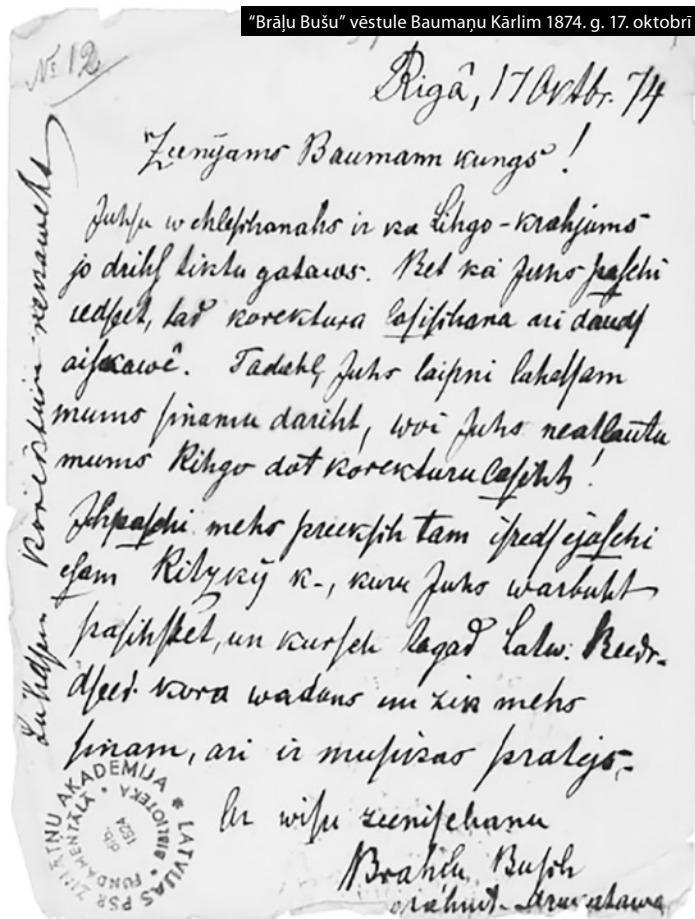 “Brāļu Bušu” vēstule Baumaņu Kārlim 1874. g. 17. oktobrī
№ 12
Rigâ, 17 Oktbr. 74
Zeenijams Baumann kungs!
Juhsu wehleschanahs ir ka Lihgo-krahjums
jo drihſ tiktu gataws. Bet kà Juhs paſchi
redſeet, tad korektura laſiſchana ari daudſ
aiſkawê. Tadehl, Juhs laipni luhdſam
mums ſinamu dariht, woi Juhs neatļautu
mums Rihgâ dot korekturu laſiht!
Ihpaſchi mehs preekſch tam iſredſejuſchi
eſam k-, kuru Juhs warbuht
paſihſtet, un kurſch tagad Latw. Beedr-
dſeed. kora wadons un zik mehs
ſinam, ari ir muſikas pratejs.-
Ar wiſu zeeniſchanu
Brahļu Buſch
Luhdſam korekturu nenoweht
LATVIJAS PSR ZINĀTŅU AKADEMIJA
FUNDAMENTĀLĀ BIBLIOTEKA
dib. 1524